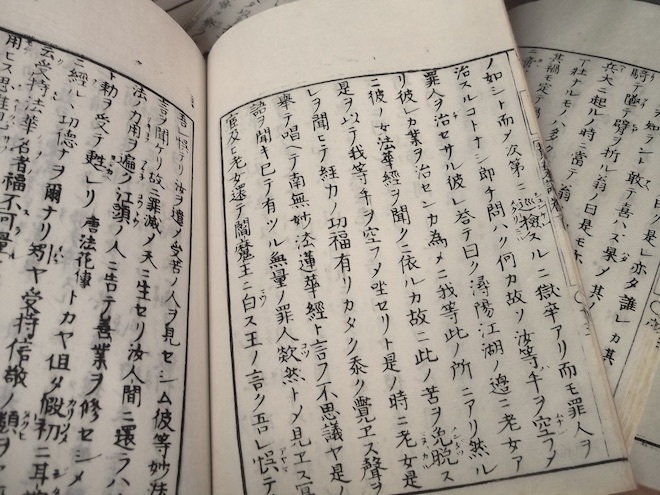 ノ曰ク是レ亦タ誰レカ其
騎テ墜テ臂ヲ折ル翁ノ曰是モ
兵大ニ起ルノ時ニ當テ翁
ノ如シト而メ次第ニ巡檢スルニ獄卒アリ而モ罪人ヲ
治スルコトナシ即チ問ハク何カ故ソ汝等手ヲ空ラメ
罪人ヲ治セサル彼レ答テ曰ク潯陽江湖ノ邊ニ老女ア
リ彼レカ業ヲ治センカ為メニ我等此ノ所ニアリ然ル
ニ彼ノ女法華經ヲ聞クニ依ルカ故ニ此ノ苦ヲ免脱ス
是ヲ以テ我等手ヲ空ラメ坐セリト是ノ時ニ老女是
レヲ聞ヒテ經カノ功福有リカタク忝ク覺エス聲ヲ
舉テ唱ヘテ南無妙法蓮華經ト言フ不思議ヤ是ノ
語ヲ聞キ已テ有ツル無量ノ罪人欻然トメ見エス冥
官及ヒ老女還テ閻魔王ニ白ス王ノ言ク吾レ悞テ
吾レ悞テリ汝ヲ遣メ受苦ノ人ヲ見セシム彼等妙法
言ヲ聞ケリ故ニ罪滅メ天ニ生セリ汝人間ニ還ラハ
法ノ力用ヲ遍ク江頭ノ人ニ告テ善業ヲ修セシメ
ト勅ヲ受テ甦レリ 唐法花傳 トカヤ但タ假初
功德ナヲ爾ナリ矧ヤ受持信敬ノ類
云受持法華名者福不可量
用ヒス思惟